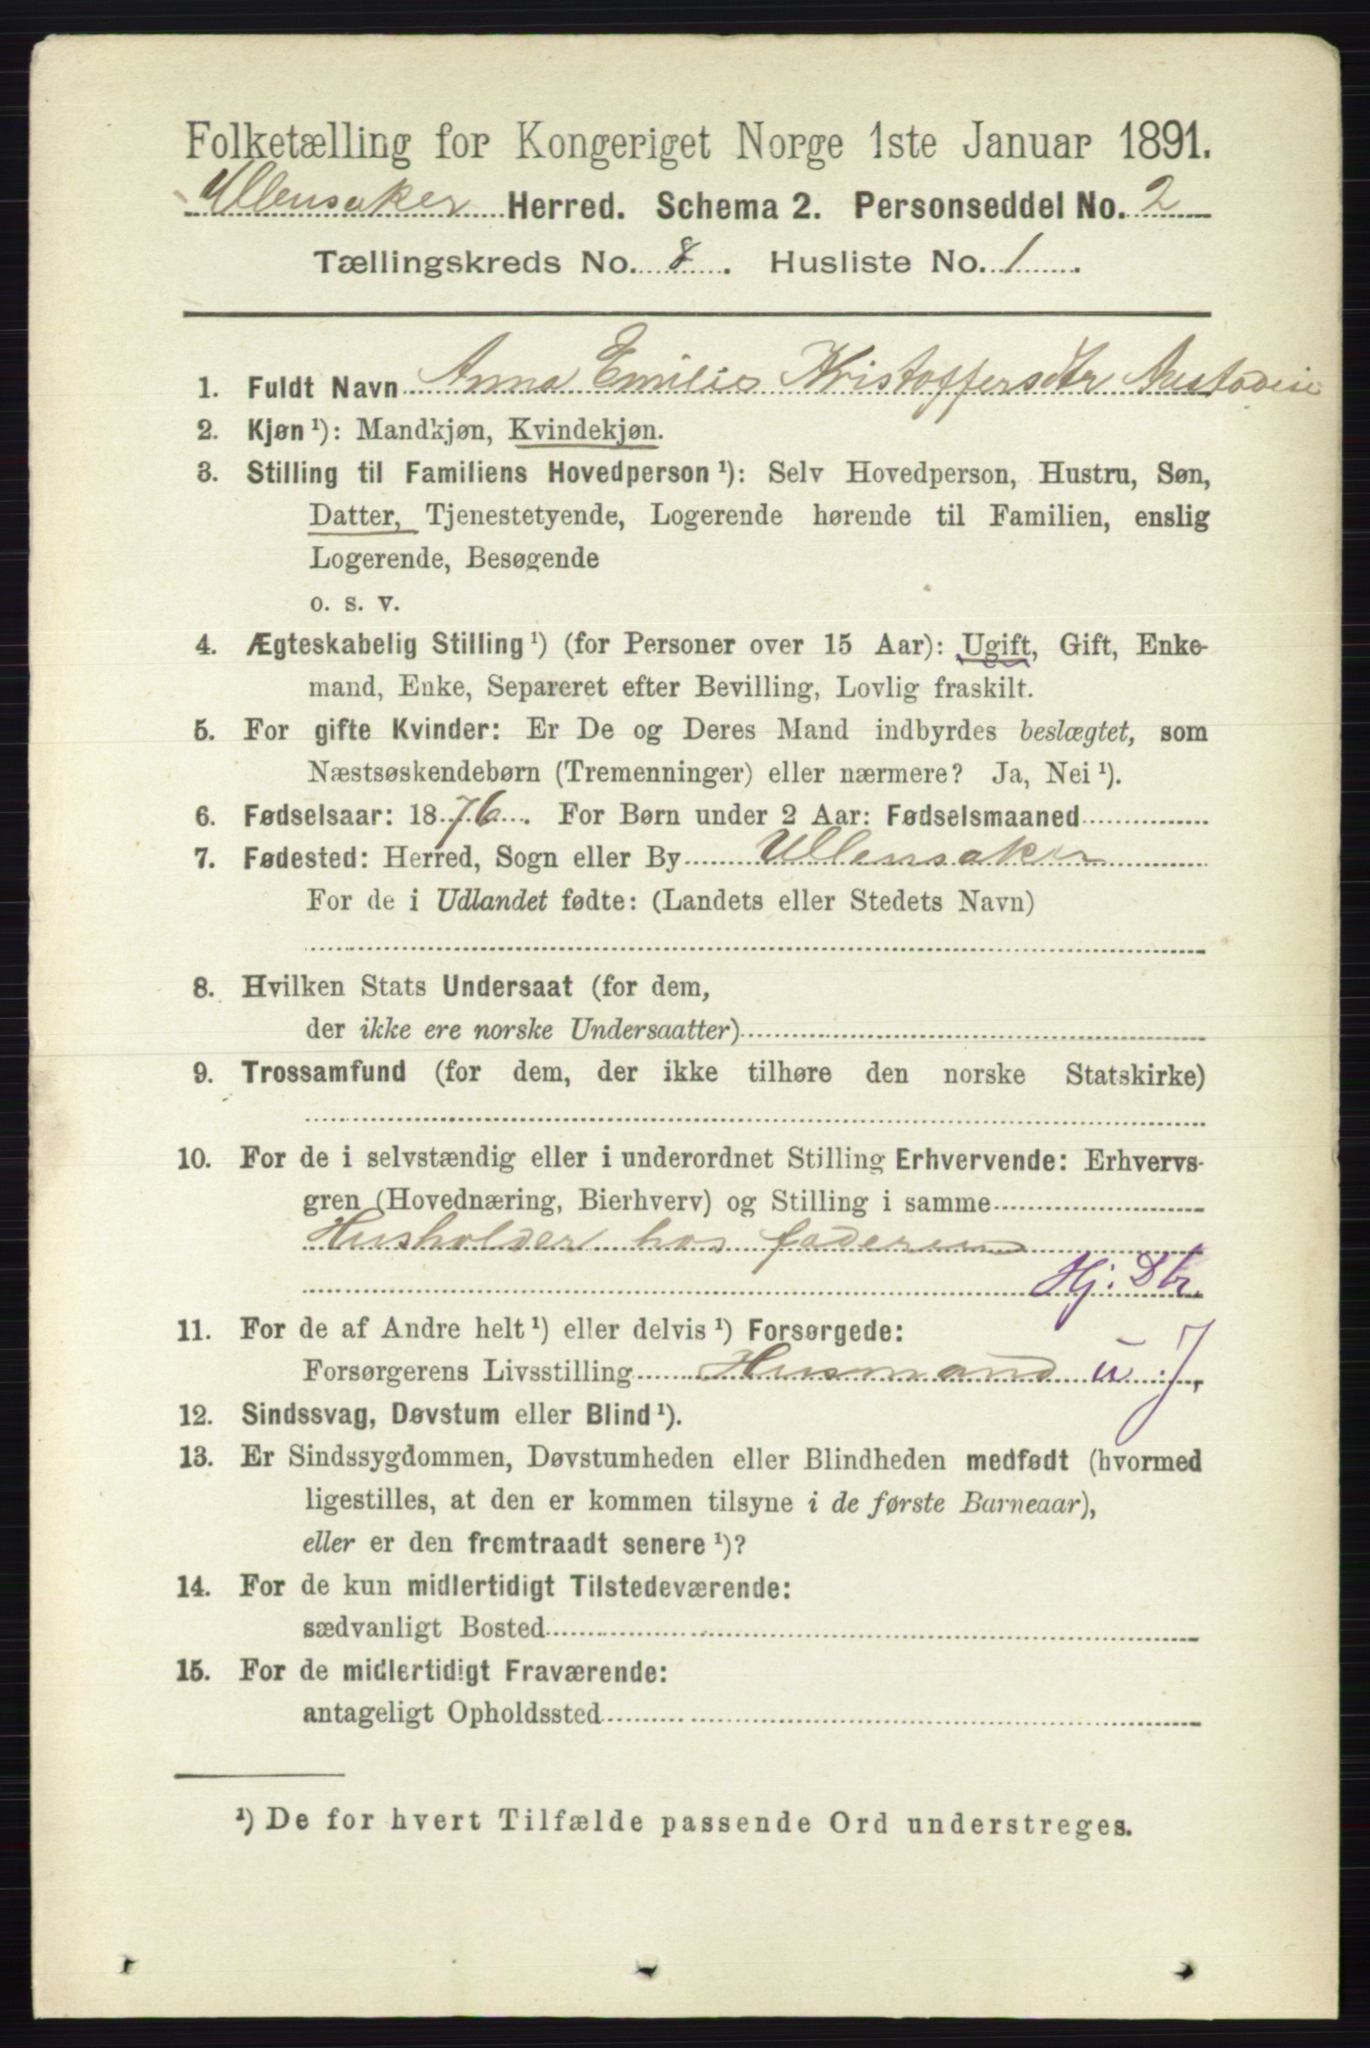 Folketælling for Kongeriget Norge 1ste Januar 1891.
Ullensaker Herred. Schema 2. Personseddel No. 2
Tællingskreds No. 8. Husliste No. 1
1. Fuldt Navn Anna Emilie Kristoffersdtr
2. Kjøn ¹): Mandkjøn, Kvindekjøn.
3. Stilling til Familiens Hovedperson ¹): Selv Hovedperson, Hustru, Søn,
Datter, Tjenestetyende, Logerende hørende til Familien, enslig
Logerende, Besøgende
o. s. v.
4. Ægteskabelig Stilling ¹) (for Personer over 15 Aar): Ugift, Gift, Enke-
mand, Enke, Separeret efter Bevilling, Lovlig fraskilt.
5. For gifte Kvinder: Er De og Deres Mand indbyrdes beslægtet, som
Næstsøskendebørn (Tremenninger) eller nærmere? Ja, Nei ¹).
6. Fødselsaar: 1876. For Børn under 2 Aar: Fødselsmaaned
7. Fødested: Herred, Sogn eller By Ullensaker
For de i Udlandet fødte: (Landets eller Stedets Navn)
8. Hvilken Stats Undersaat (for dem,
der ikke ere norske Undersaatter)
9. Trossamfund (for dem, der ikke tilhøre den norske Statskirke)
10. For de i selvstændig eller i underordnet Stilling Erhvervende: Erhvervs-
gren (Hovednæring, Bierhverv) og Stilling i samme
Husholder hos faderen
Hj. Dtr.
11. For de af Andre helt ¹) eller delvis ¹) Forsørgede:
Forsørgerens Livsstilling Husmand u. J.
12. Sindssvag, Døvstum eller Blind ¹).
13. Er Sindssygdommen, Døvstumheden eller Blindheden medfødt (hvormed
ligestilles, at den er kommen tilsyne i de første Barneaar),
eller er den fremtraadt senere ¹)?
14. For de kun midlertidigt Tilstedeværende:
sædvanligt Bosted
15. For de midlertidigt Fraværende:
antageligt Opholdssted
¹) De for hvert Tilfælde passende Ord understreges.